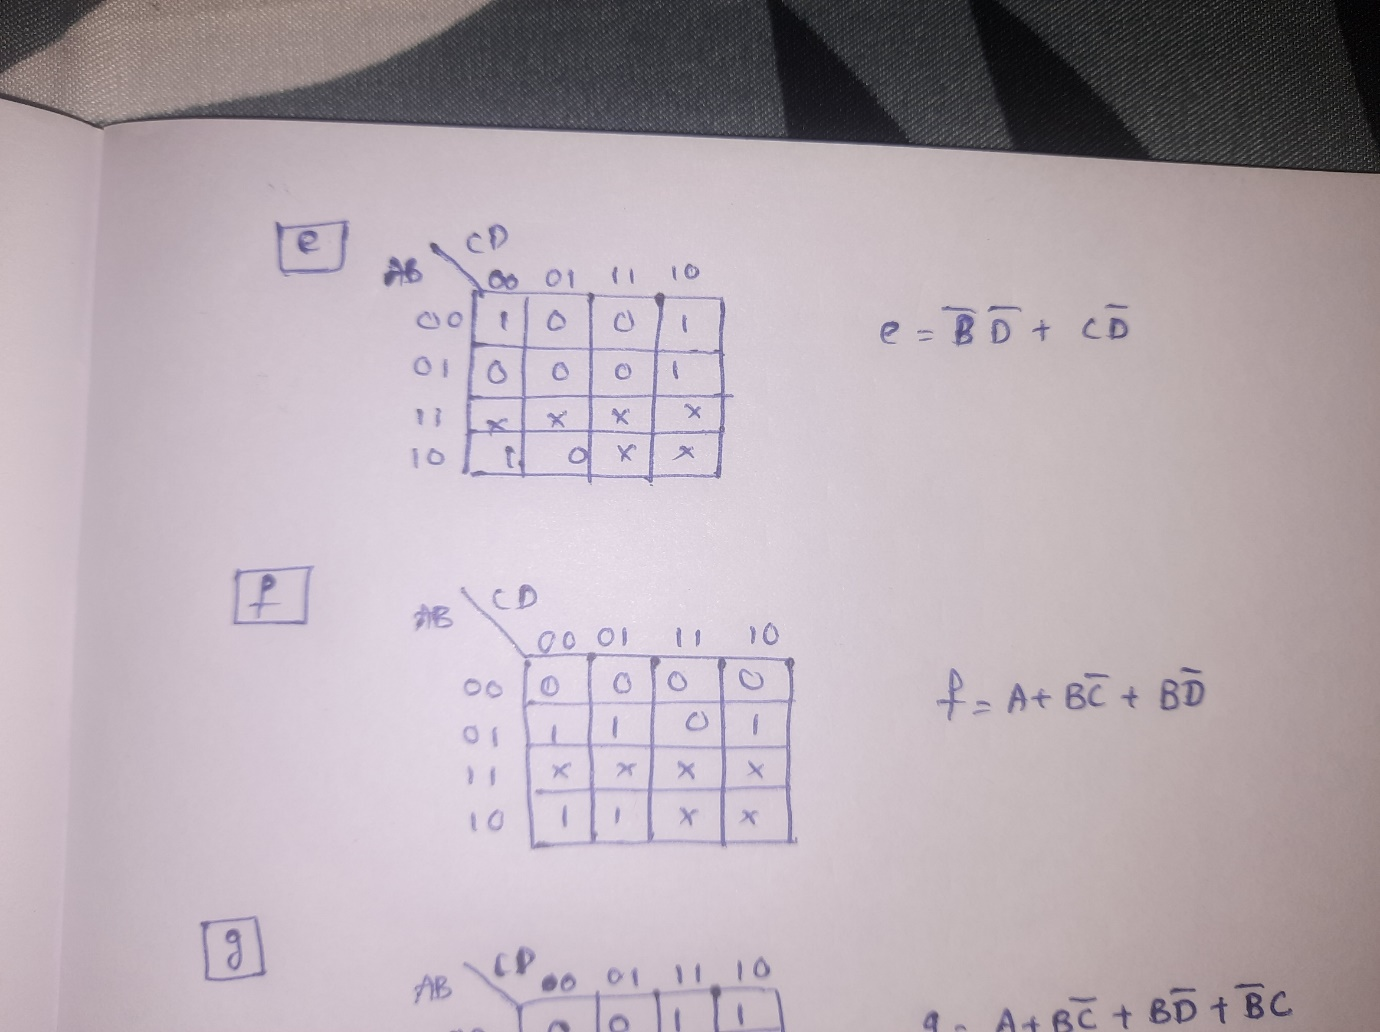 e
CD
AB 00 01 11 10
00 1 0 0 1
01 0 0 0 1
11 x x x x
10 1 0 x x
e = B̅ D̅ + CD̅
f
CD
AB
00 01 11 10
00 0 0 0 0
01 1 1 0 1
11 x x x x
10 1 1 x x
f = A + BC̅ + BD̅
g
CD
AB 00 01 11 10
0 0 1 1
g = A + BC̅ + BD̅ + B̅C